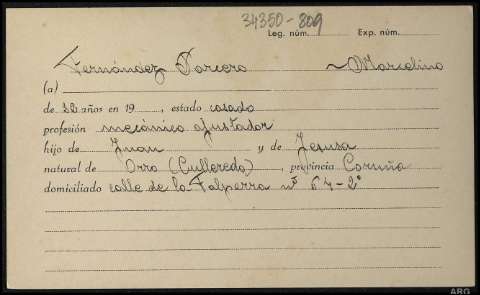 34350-809
Leg. núm. Exp. núm.
Fernández Porcero ~ Marcelino
(a)
de 22 años en 19 , estado casado
profesión mecánico ajustador
hijo de Juan y de Jesusa
natural de Orro (Culleredo) , provincia Coruña
domiciliado calle de la Falperra nº 67-2º
ARG